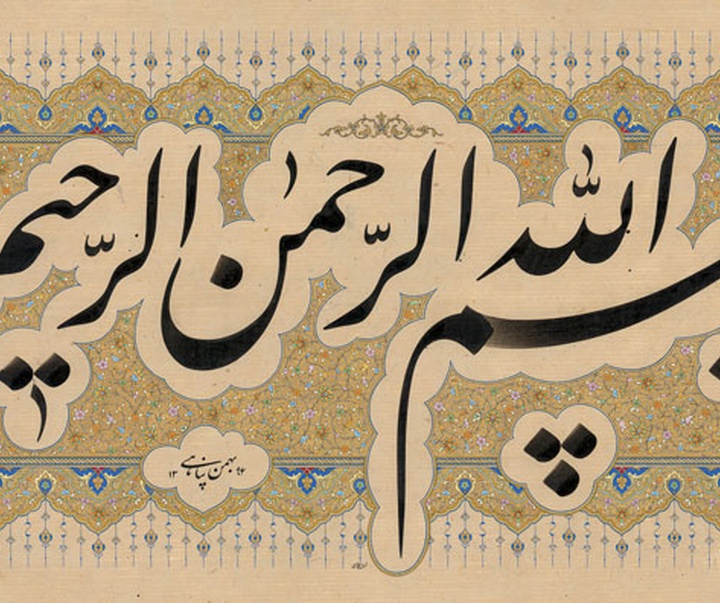 بسم الله الرحمٰن الرحیم
بهمن پناهی